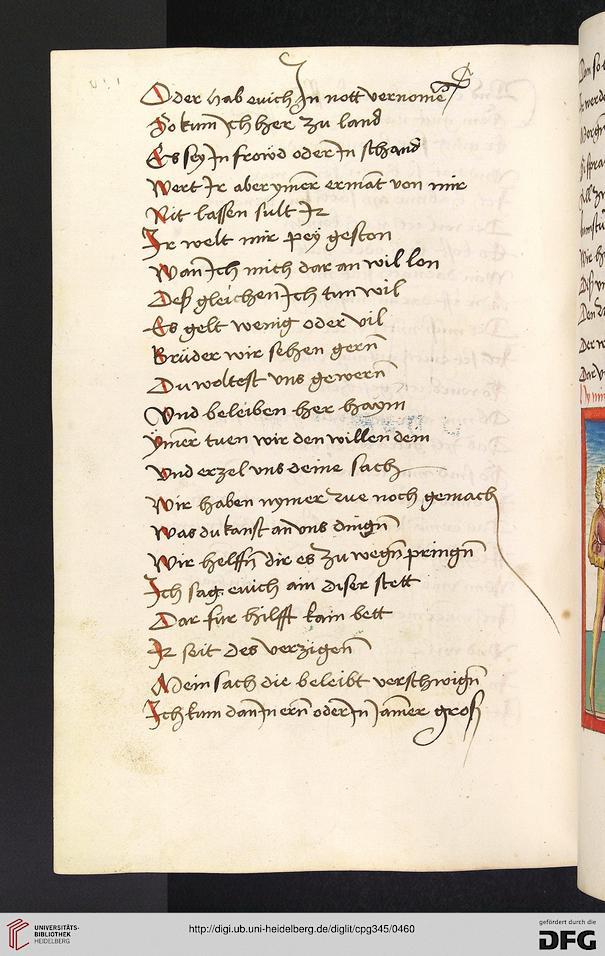 Oder hab euich In nott vernome
So kum Ich her zu land
Es sey In frowd oder In schand
Wert Ir aber ymer ermat von mir
Nit lassen sult Ir
Ir welt mir pey geston
Wan Ich mich dar an wil lon
Deß gleichen Ich tun wil
Es gelt wenig oder vil
Brüder wir sehen gern
Du woltest vns gewern
Vnd beleiben her haym
ymer tuen wir den willen dem
Vnd erzel vns deine sach
Wir haben nymer rue noch gemach
Was du kanst an vns dingn
Wir helffn dir es zu wegn pringn
Ich sag euich ain diser stett
Dar fur hilfft kain bett
Ir seit des verzigen
Mein sach die beleibt verschwign
Ich kum dan In ern oder In Jamer groß
UNIVERSITÄTS-
BIBLIOTHEK
HEIDELBERG
http://digi.ub.uni-heidelberg.de/diglit/cpg345/0460
gefördert durch die
DFG